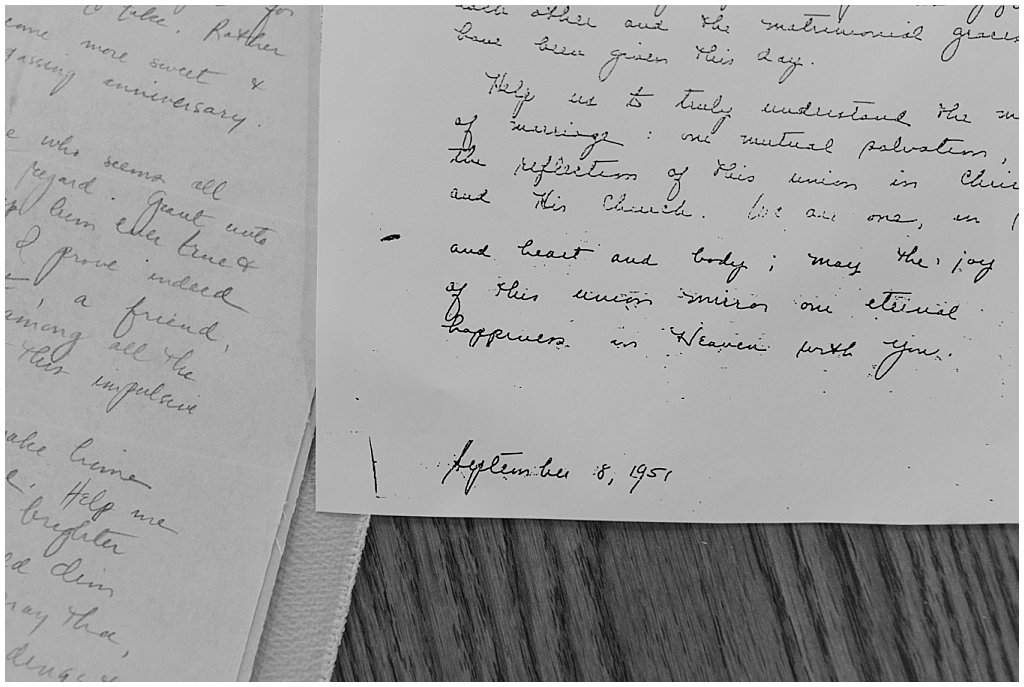 for
to take. Rather
more sweet &
passing anniversary.
who seems all
regard. Grant unto
him ever true &
I prove indeed
, a friend,
among all the
this impulsive
make home
Help me
brighter
dim
may the,
each other and the matrimonial graces
have been given this day.
Help us to truly understand the m
of marriage: our mutual salvation,
the reflection of this union in Chris
and His Church. We are one, in
and heart and body; may the joy
of this union mirror our eternal
happiness in Heaven with You.
September 8, 1951